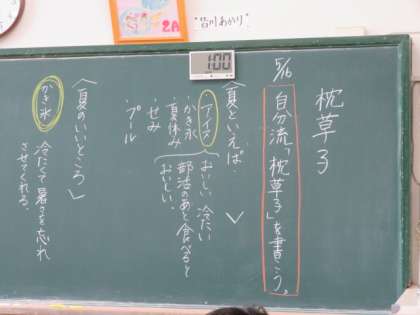 枕草子
5/16
自分流「枕草子」を書こう。
〈夏といえば…〉
アイス
かき氷
・夏休み
・せみ
・プール
おいしい、冷たい
部活のあと食べると
おいしい。
〈夏のいいところ〉
かき氷
冷たくて暑さを忘れ
させてくれる。
1:00
2A
"皆川あかり"